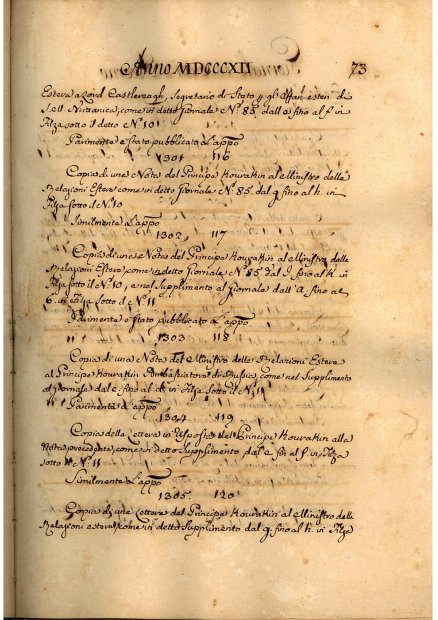 Anno MDCCCXII 73
Estera a Lord Castlereagh, Segretario di Stato gl'Affari esteri di
come in detto Giornale N.º 85 dall' e fino al f in
Filza sotto il detto N.º 10
Parimente è stato pubblicato l'appo
1301 116
Copia di una Nota del Principe Kourakin al Ministro delle
Relazioni Estere come in detto Giornale N.º 85. dal g fino al h. in
Filza sotto il N.º 10
Similmente l'appo
1302 117
Copia di una Nota del Principe Kourakin al Ministro delle
Relazioni Estere come in detto Giornale N.º 85 dal fino al k in
Filza sotto il N.º 10, e nel Supplimento al Giornale dall' a fino al
b. in Filza sotto il N.º 11
Parimente è stato pubblicato l'appo
1303 118
Copia di una Nota del Ministro delle Relazioni Estere
al Principe Kourakin Ambasciatore di Russia, come nel Supplimento
al Giornale dal c fino al d. in Filza sotto il N.º 11
Parimente l'appo
1304 119
Copia della Lettera in Risposta del Principe Kourakin alla
Nota precedente, come in detto Supplimento dal e fin al f in Filza
sotto il N.º 11
Similmente l'appo
1305. 120
Copia di una Lettera del Principe Kourakin al Ministro delle
Relazioni estere, come in detto Supplimento dal g. fino al h. in Filza